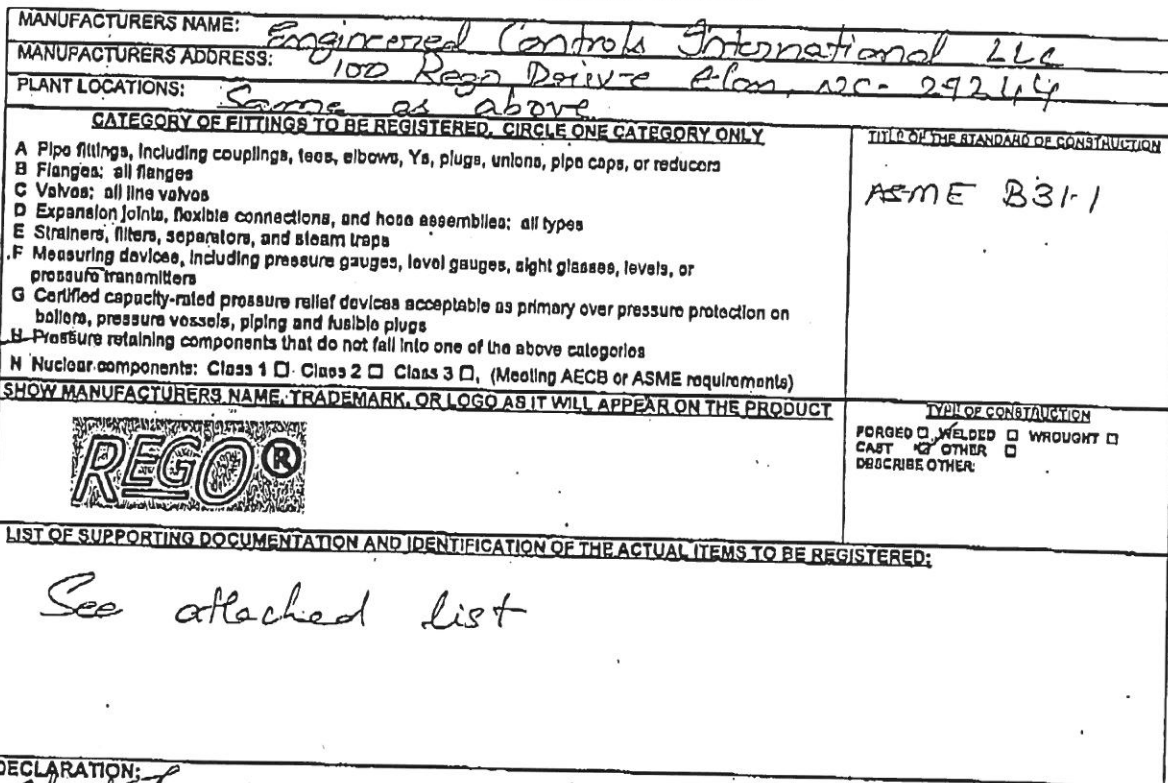 MANUFACTURERS NAME: Engineered Controls International LLC
MANUFACTURERS ADDRESS: 100 Rego Drive Elon, NC- 29244
PLANT LOCATIONS: Same as above
CATEGORY OF FITTINGS TO BE REGISTERED, CIRCLE ONE CATEGORY ONLY
A Pipe fittings, including couplings, tees, elbows, Ys, plugs, unions, pipe caps, or reducers
B Flanges: all flanges
C Valves: all line valves
D Expansion joints, flexible connections, and hose assemblies: all types
E Strainers, filters, separators, and steam traps
F Measuring devices, including pressure gauges, level gauges, sight glasses, levels, or
pressure transmitters
G Certified capacity-rated pressure relief devices acceptable as primary over pressure protection on
boilers, pressure vessels, piping and fusible plugs
H Pressure retaining components that do not fall into one of the above categories
N Nuclear components: Class 1 ☐ Class 2 ☐ Class 3 ☐, (Meeting AECB or ASME requirements)
TITLE OF THE STANDARD OF CONSTRUCTION
ASME B31.1
SHOW MANUFACTURERS NAME, TRADEMARK, OR LOGO AS IT WILL APPEAR ON THE PRODUCT
REGO®
TYPE OF CONSTRUCTION
FORGED ☐ WELDED ☐ WROUGHT ☐
CAST ☑ OTHER ☐
DESCRIBE OTHER:
LIST OF SUPPORTING DOCUMENTATION AND IDENTIFICATION OF THE ACTUAL ITEMS TO BE REGISTERED:
See attached list
DECLARATION: